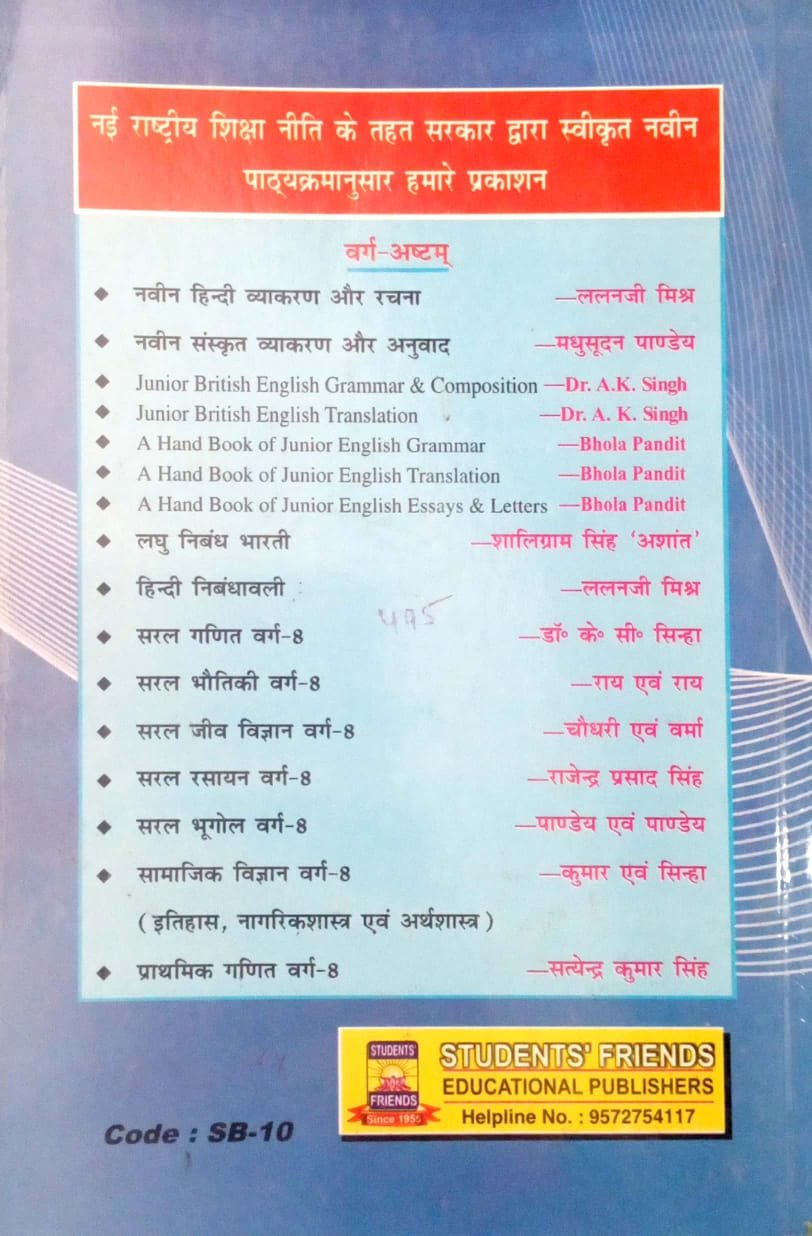 नई राष्ट्रीय शिक्षा नीति के तहत सरकार द्वारा स्वीकृत नवीन
पाठ्यक्रमानुसार हमारे प्रकाशन
वर्ग-अष्टम्
◆ नवीन हिन्दी व्याकरण और रचना —ललनजी मिश्र
◆ नवीन संस्कृत व्याकरण और अनुवाद —मधुसूदन पाण्डेय
◆ Junior British English Grammar & Composition —Dr. A.K. Singh
◆ Junior British English Translation —Dr. A. K. Singh
◆ A Hand Book of Junior English Grammar —Bhola Pandit
◆ A Hand Book of Junior English Translation —Bhola Pandit
◆ A Hand Book of Junior English Essays & Letters —Bhola Pandit
◆ लघु निबंध भारती —शालिग्राम सिंह ‘अशांत’
◆ हिन्दी निबंधावली —ललनजी मिश्र
◆ सरल गणित वर्ग-8 —डॉ॰ के॰ सी॰ सिन्हा
◆ सरल भौतिकी वर्ग-8 —राय एवं राय
◆ सरल जीव विज्ञान वर्ग-8 —चौधरी एवं वर्मा
◆ सरल रसायन वर्ग-8 —राजेन्द्र प्रसाद सिंह
◆ सरल भूगोल वर्ग-8 —पाण्डेय एवं पाण्डेय
◆ सामाजिक विज्ञान वर्ग-8 —कुमार एवं सिन्हा
(इतिहास, नागरिकशास्त्र एवं अर्थशास्त्र)
◆ प्राथमिक गणित वर्ग-8 —सत्येन्द्र कुमार सिंह
STUDENTS'
FRIENDS
Since 1955
STUDENTS' FRIENDS
EDUCATIONAL PUBLISHERS
Helpline No. : 9572754117
Code : SB-10